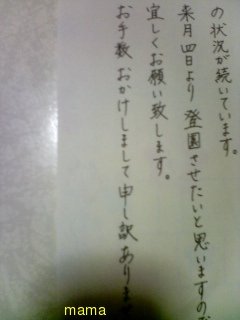 の状況が続いています。
来月四日より登園させたいと思いますので
宜しくお願い致します。
お手数おかけしまして申し訳ありま
mama